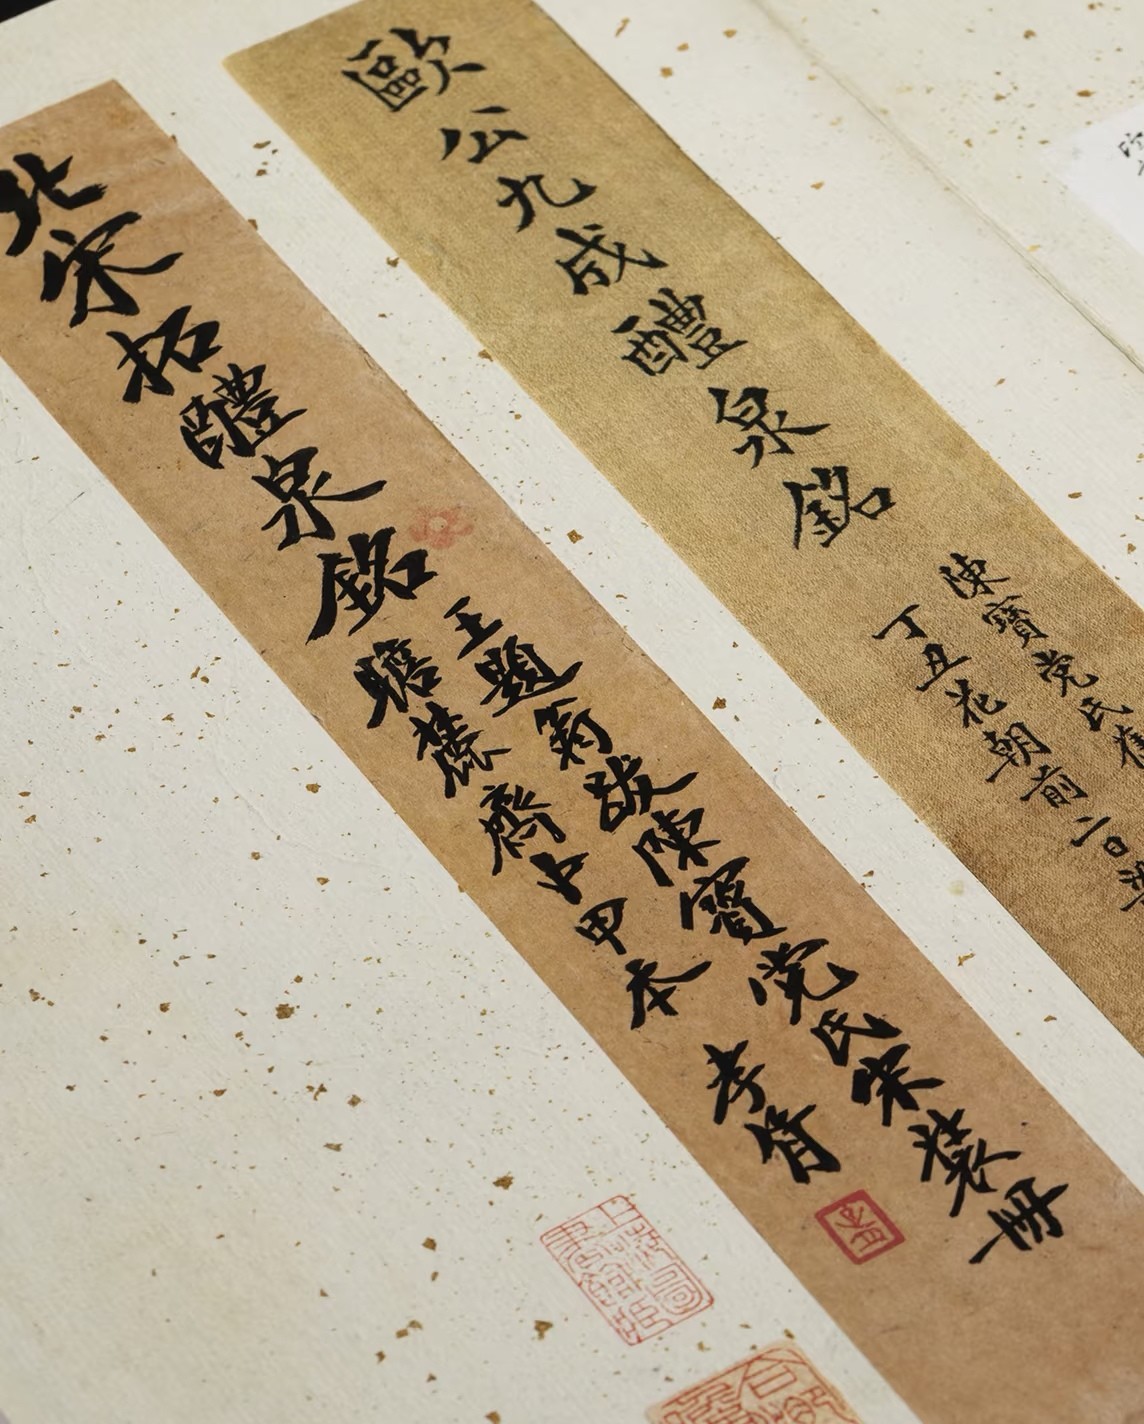 歐公九成醴泉銘
陳寶党氏舊
丁丑花朝前二日
北宋拓醴泉銘
王題翁跋陳寶党氏宋裝冊
瞻麓齋中甲本 孝胥